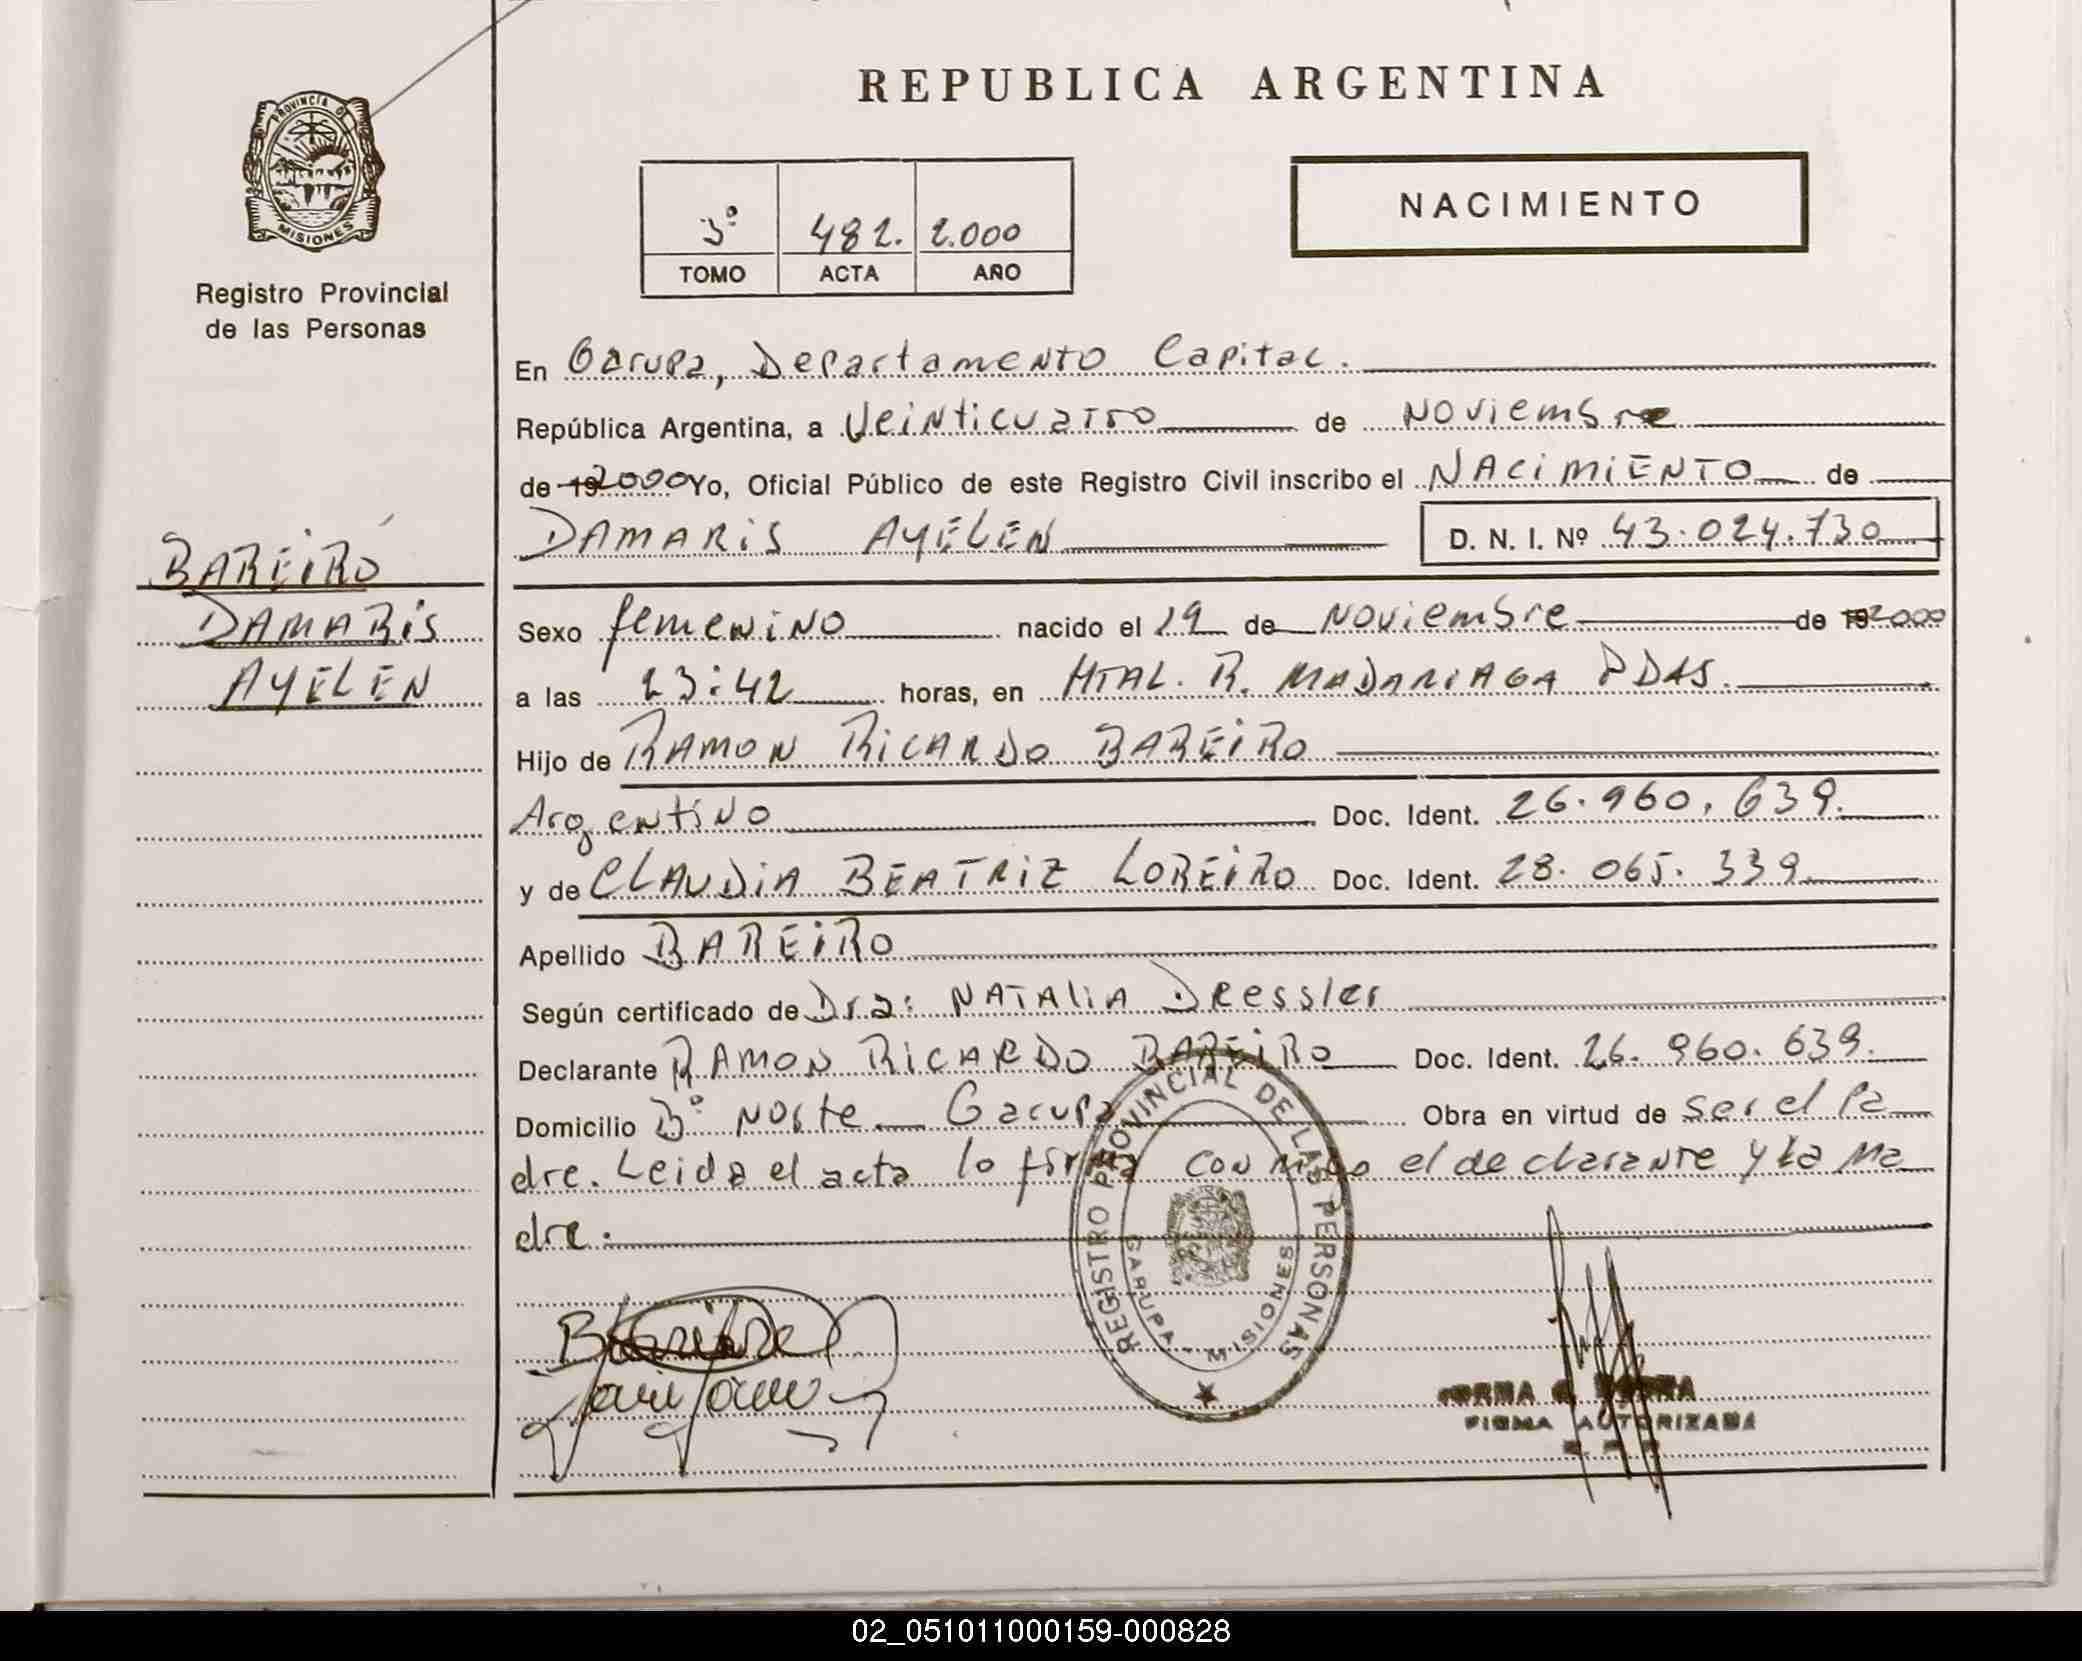 REPUBLICA ARGENTINA
PROVINCIA DE
MISIONES
Registro Provincial
de las Personas
3º 482. 2.000
TOMO ACTA AÑO
NACIMIENTO
En Garupa, Departamento Capital.
República Argentina, a Veinticuatro de Noviembre
de 19 2000 Yo, Oficial Público de este Registro Civil inscribo el NACIMIENTO de
DAMARIS AYELEN D. N. I. Nº 43.024.730
BAREIRO
DAMARIS
AYELEN
Sexo femenino nacido el 19 de Noviembre de 19 2000
a las 23:42 horas, en HTAL. R. MADARIAGA PDAS.
Hijo de RAMON RICARDO BAREIRO
Argentino Doc. Ident. 26.960.639.
y de CLAUDIA BEATRIZ LOREIRO Doc. Ident. 28.065.339.
Apellido BAREIRO
Según certificado de Dra: NATALIA Dressler
Declarante RAMON RICARDO BAREIRO Doc. Ident. 26.960.639.
Domicilio Bº Norte Garupa Obra en virtud de ser el Pa
dre. Leida el acta lo firma conmigo el declarante y la Ma
dre.
REGISTRO PROVINCIAL DE LAS PERSONAS
GARUPA - MISIONES
FIRMA AUTORIZADA
02_051011000159-000828